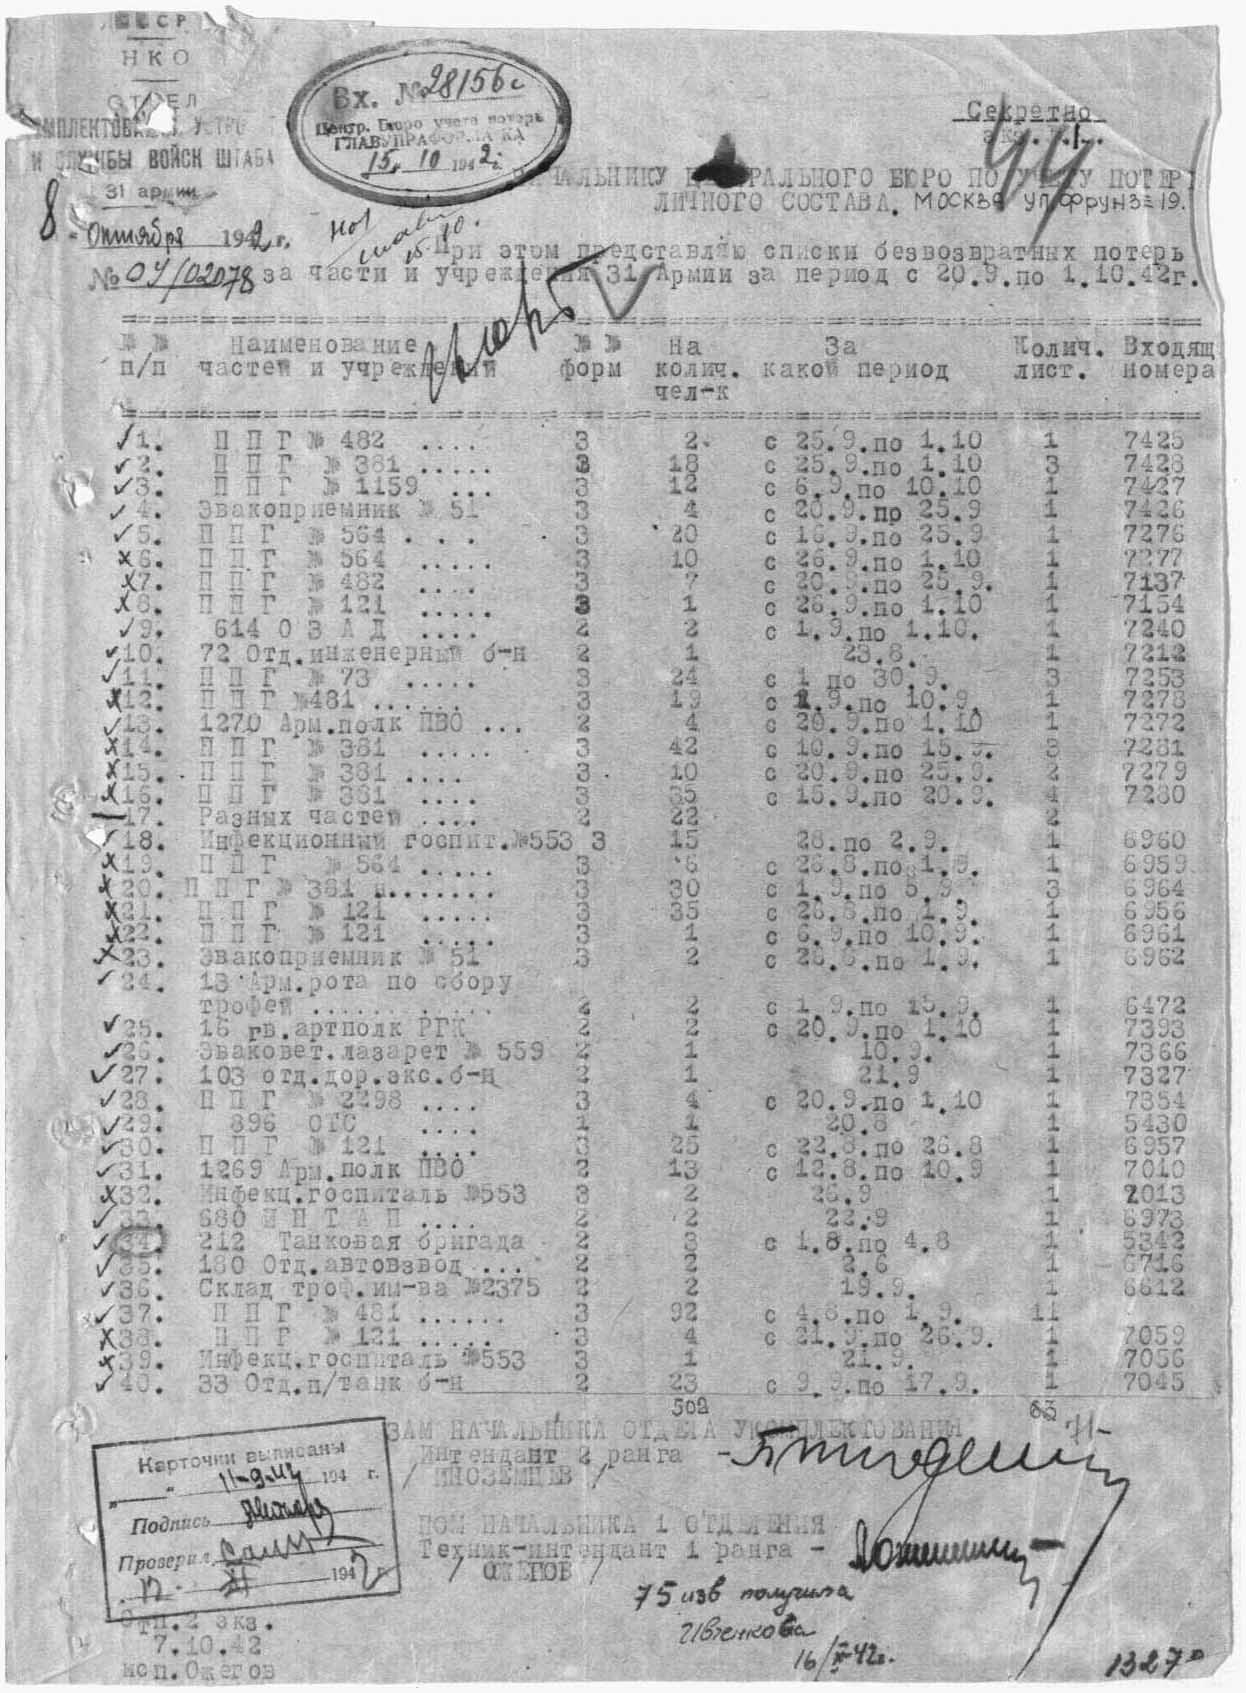 СССР
НКО
ОТДЕЛ
КОМПЛЕКТОВАНИЯ, УСТРО
И СЛУЖБЫ ВОЙСК ШТАБА
31 армии
8 „ Октября 1942 г.
№ 04/02078
Вх. № 28156с
Центр. Бюро учета потерь
ГЛАВУПРАФОРМА КА
15. 10 1942 г.
Секретно
экз. № 1.
44
НАЧАЛЬНИКУ ЦЕНТРАЛЬНОГО БЮРО ПО УЧЕТУ ПОТЕРЬ
ЛИЧНОГО СОСТАВА. МОСКВА ул. Фрунзе 19.
При этом представляю списки безвозвратных потерь
за части и учреждения 31 Армии за период с 20.9.по 1.10.42г.
№ № Наименование № № На За Колич. Входящ
п/п частей и учреждений форм колич. какой период лист. номера
чел-к
1. ППГ № 482 .... 3 2 с 25.9.по 1.10 1 7425
2. ППГ № 381 ..... 3 18 с 25.9.по 1.10 3 7428
3. ППГ № 1159 ... 3 12 с 6.9.по 10.10 1 7427
4. Эвакоприемник № 51 3 4 с 20.9.по 25.9 1 7426
5. ППГ № 564 . . . 3 20 с 16.9.по 25.9 1 7276
6. ППГ № 564 ..... 3 10 с 26.9.по 1.10 1 7277
7. ППГ № 482 .... 3 7 с 20.9.по 25.9. 1 7137
8. ППГ № 121 ..... 3 1 с 26.9.по 1.10 1 7154
9. 614 ОЗАД .... 2 2 с 1.9.по 1.10. 1 7240
10. 72 Отд.инженерный б-н 2 1 23.8. 1 7212
11. ППГ № 73 ..... 3 24 с 1 по 30.9. 3 7253
12. ППГ №481 ...... 3 19 с 1.9.по 10.9. 1 7278
13. 1270 Арм.полк ПВО ... 2 4 с 20.9.по 1.10 1 7272
14. ППГ № 381 ..... 3 42 с 10.9.по 15.9. 3 7281
15. ППГ № 381 .... 3 10 с 20.9.по 25.9. 2 7279
16. ППГ № 381 .... 3 35 с 15.9.по 20.9. 4 7280
17. Разных частей .... 2 22 2
18. Инфекционный госпит.№553 3 15 28.по 2.9. 1 6960
19. ППГ № 564 ..... 3 6 с 26.8.по 1.9. 1 6959
20. ППГ № 381 ........ 3 30 с 1.9.по 5.9. 3 6964
21. ППГ № 121 ..... 3 35 с 26.8.по 1.9. 1 6956
22. ППГ № 121 ..... 3 1 с 6.9.по 10.9. 1 6961
23. Эвакоприемник № 51 3 2 с 28.8.по 1.9. 1 6962
24. 13 Арм.рота по сбору
трофей ............ 2 2 с 1.9.по 15.9. 1 6472
25. 16 гв.артполк РГК 2 2 с 20.9.по 1.10 1 7393
26. Эваковет.лазарет № 559 2 1 10.9. 1 7366
27. 103 отд.дор.экс.б-н 2 1 21.9 1 7327
28. ППГ № 2298 .... 3 4 с 20.9.по 1.10 1 7354
29. 896 ОТС .... 1 1 20.8 1 5430
30. ППГ № 121 .... 3 25 с 22.8.по 26.8 1 6957
31. 1269 Арм.полк ПВО 2 13 с 12.8.по 10.9 1 7010
32. Инфекц.госпиталь №553 3 2 26.9 1 7013
33. 680 ИПТАП .... 2 2 22.9 1 6973
34. 212 Танковая бригада 2 3 с 1.8.по 4.8 1 5342
35. 180 Отд.автовзвод ... 2 2 2.6 1 6716
36. Склад троф.им-ва №2375 2 2 19.9. 1 6612
37. ППГ № 481 ...... 3 92 с 4.8.по 1.9. 11
38. ППГ № 121 ..... 3 4 с 21.9.по 26.9. 1 7059
39. Инфекц.госпиталь №553 3 1 21.9. 1 7056
40. 33 Отд.п/танк б-н 2 23 с 9.9.по 17.9. 1 7045
502 63
71-
ЗАМ НАЧАЛЬНИКА ОТДЕЛА УКОМПЛЕКТОВАНИЯ
Интендант 2 ранга -
/ ИНОЗЕМЦЕВ /
ПОМ НАЧАЛЬНИКА 1 ОТДЕЛЕНИЯ
Техник-интендант 1 ранга -
/ ОЖЕГОВ /
Карточки выписаны
„ “ 11-9-42 194 г.
Подпись
Проверил
12 XI 1942 г.
75 изв получила
Ивченкова
16/X-42г.
Отп.2 экз.
7.10.42
исп.Ожегов
13270